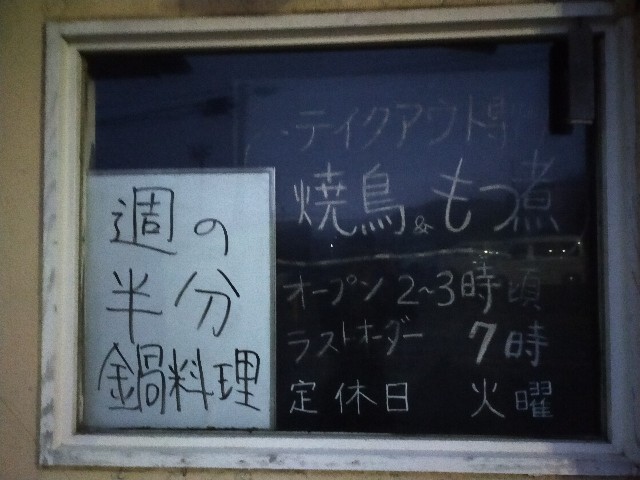 週の
半分
鍋料理
テイクアウト
焼鳥&もつ煮
オープン 2~3時頃
ラストオーダー 7時
定休日 火曜